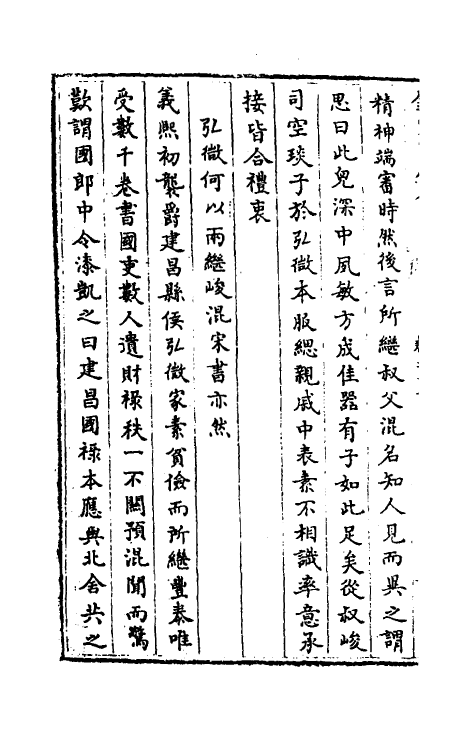 精神端審時然後言所繼叔父混名知人見而異之謂
思曰此兒深中夙敏方成佳器有子如此足矣從叔峻
司空琰子於弘微本服緦親戚中表素不相識率意承
接皆合禮衷
弘微何以兩繼峻混宋書亦然
義熙初襲爵建昌縣侯弘微家素貧儉而所繼豐泰唯
受數千卷書國吏數人遺財祿秩一不關預混聞而驚
歎謂國郎中令漆凱之曰建昌國祿本應與北舍共之